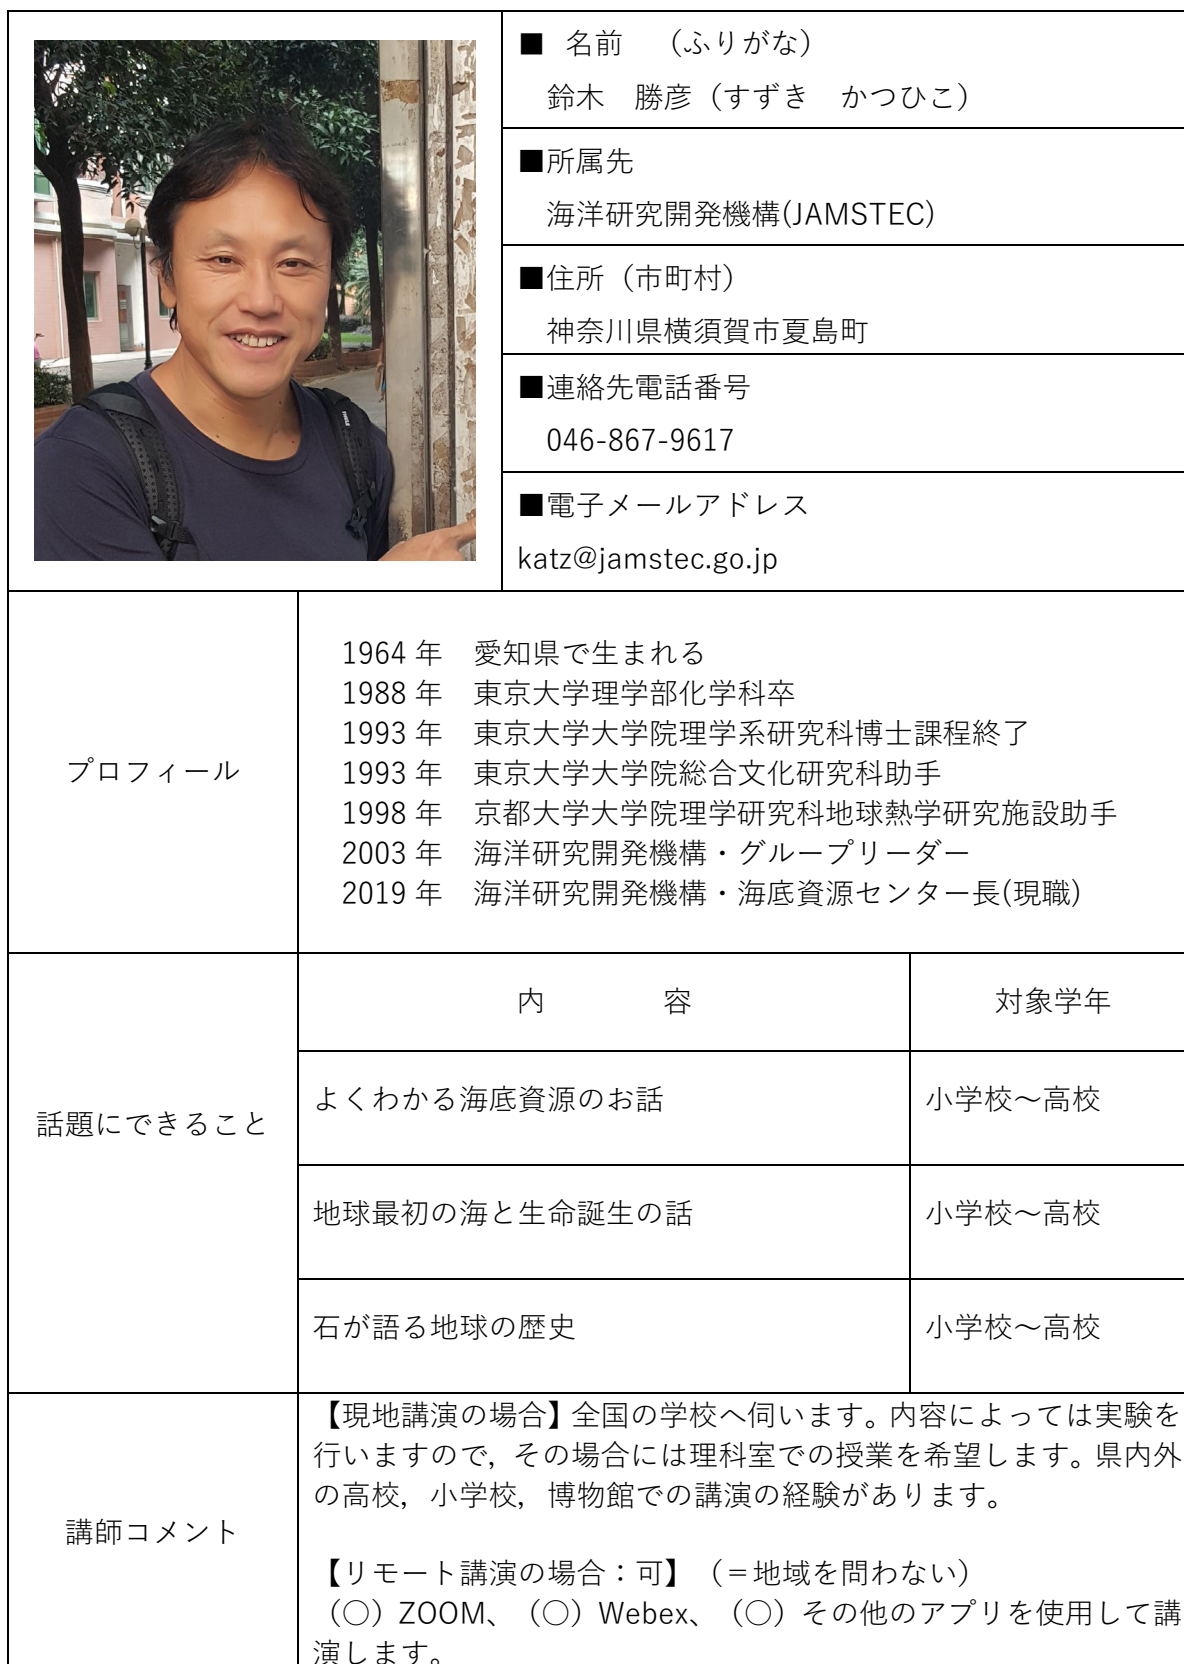 ■ 名前 （ふりがな）
鈴木 勝彦（すずき かつひこ）
■所属先
海洋研究開発機構(JAMSTEC)
■住所（市町村）
神奈川県横須賀市夏島町
■連絡先電話番号
046-867-9617
■電子メールアドレス
katz@jamstec.go.jp
プロフィール
1964 年 愛知県で生まれる
1988 年 東京大学理学部化学科卒
1993 年 東京大学大学院理学系研究科博士課程終了
1993 年 東京大学大学院総合文化研究科助手
1998 年 京都大学大学院理学研究科地球熱学研究施設助手
2003 年 海洋研究開発機構・グループリーダー
2019 年 海洋研究開発機構・海底資源センター長(現職)
話題にできること
内 容 対象学年
よくわかる海底資源のお話 小学校～高校
地球最初の海と生命誕生の話 小学校～高校
石が語る地球の歴史 小学校～高校
講師コメント
【現地講演の場合】全国の学校へ伺います。内容によっては実験を
行いますので，その場合には理科室での授業を希望します。県内外
の高校，小学校，博物館での講演の経験があります。
【リモート講演の場合：可】（＝地域を問わない）
（○）ZOOM、（○）Webex、（○）その他のアプリを使用して講
演します。